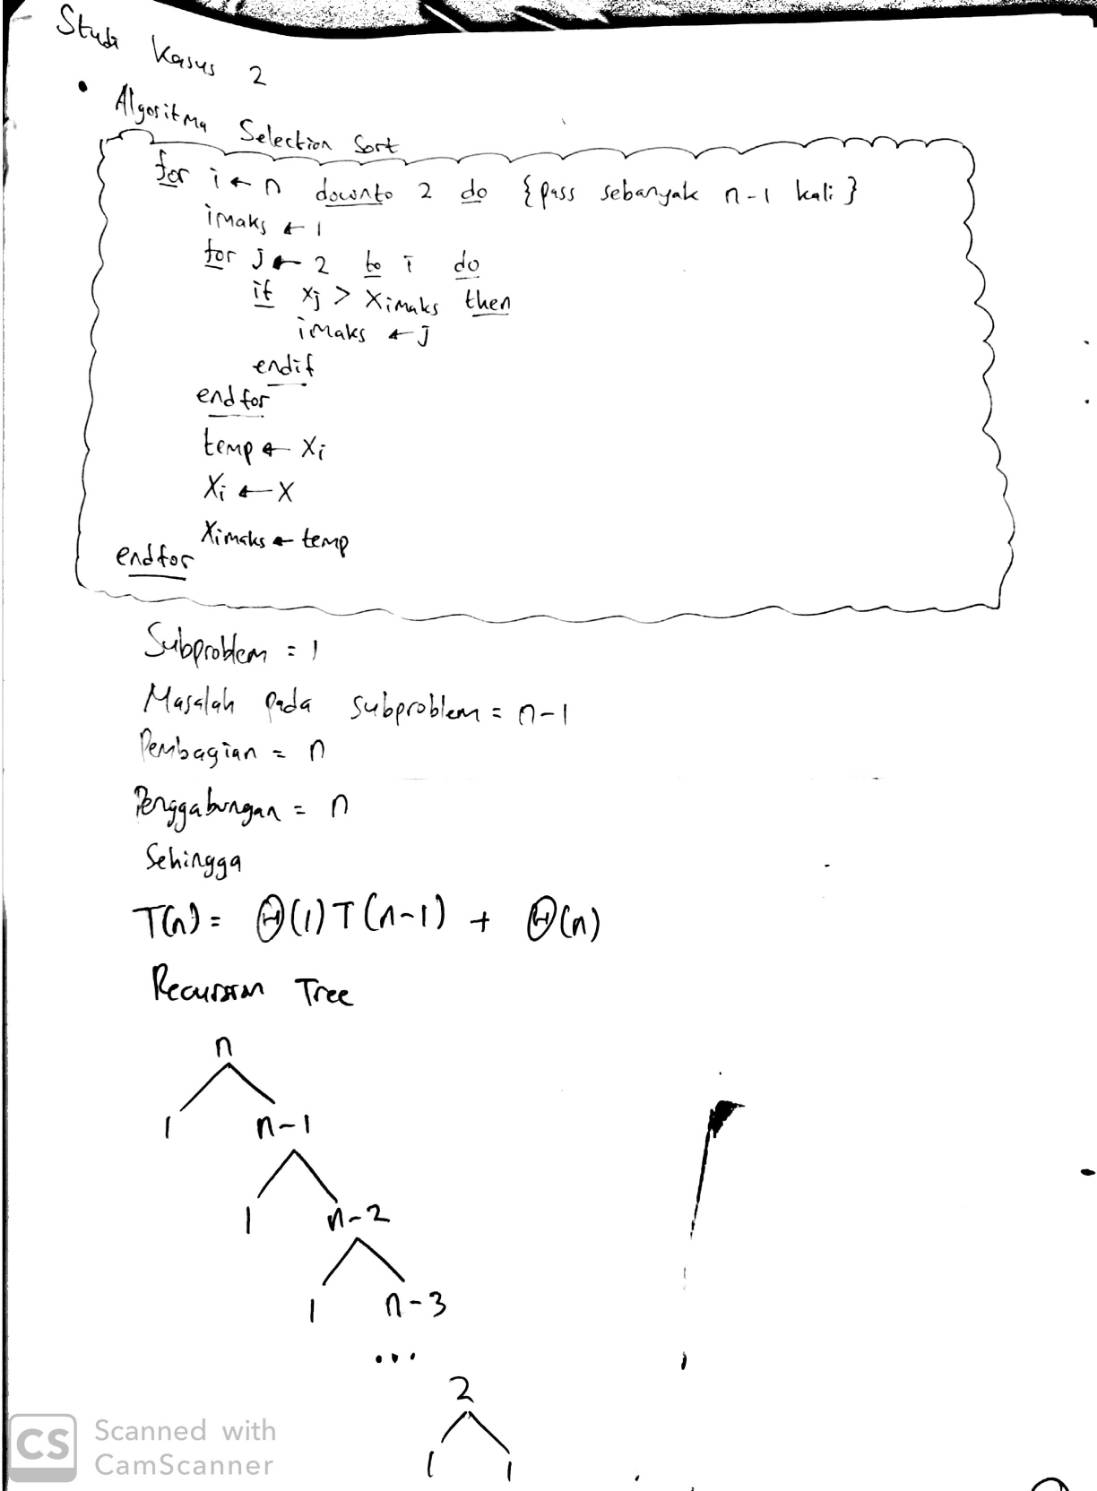 Studi Kasus 2
• Algoritma Selection Sort
for i ← n downto 2 do {pass sebanyak n-1 kali}
imaks ← 1
for j ← 2 to i do
if xj > Ximaks then
imaks ← j
endif
endfor
temp ← Xi
Xi ← X
Ximaks ← temp
endfor
Subproblem = 1
Masalah pada subproblem = n-1
Pembagian = n
Penggabungan = n
Sehingga
T(n) = Θ(1) T(n-1) + Θ(n)
Recursion Tree
n
1 n-1
1 n-2
1 n-3
...
2
1 1
CS Scanned with
CamScanner